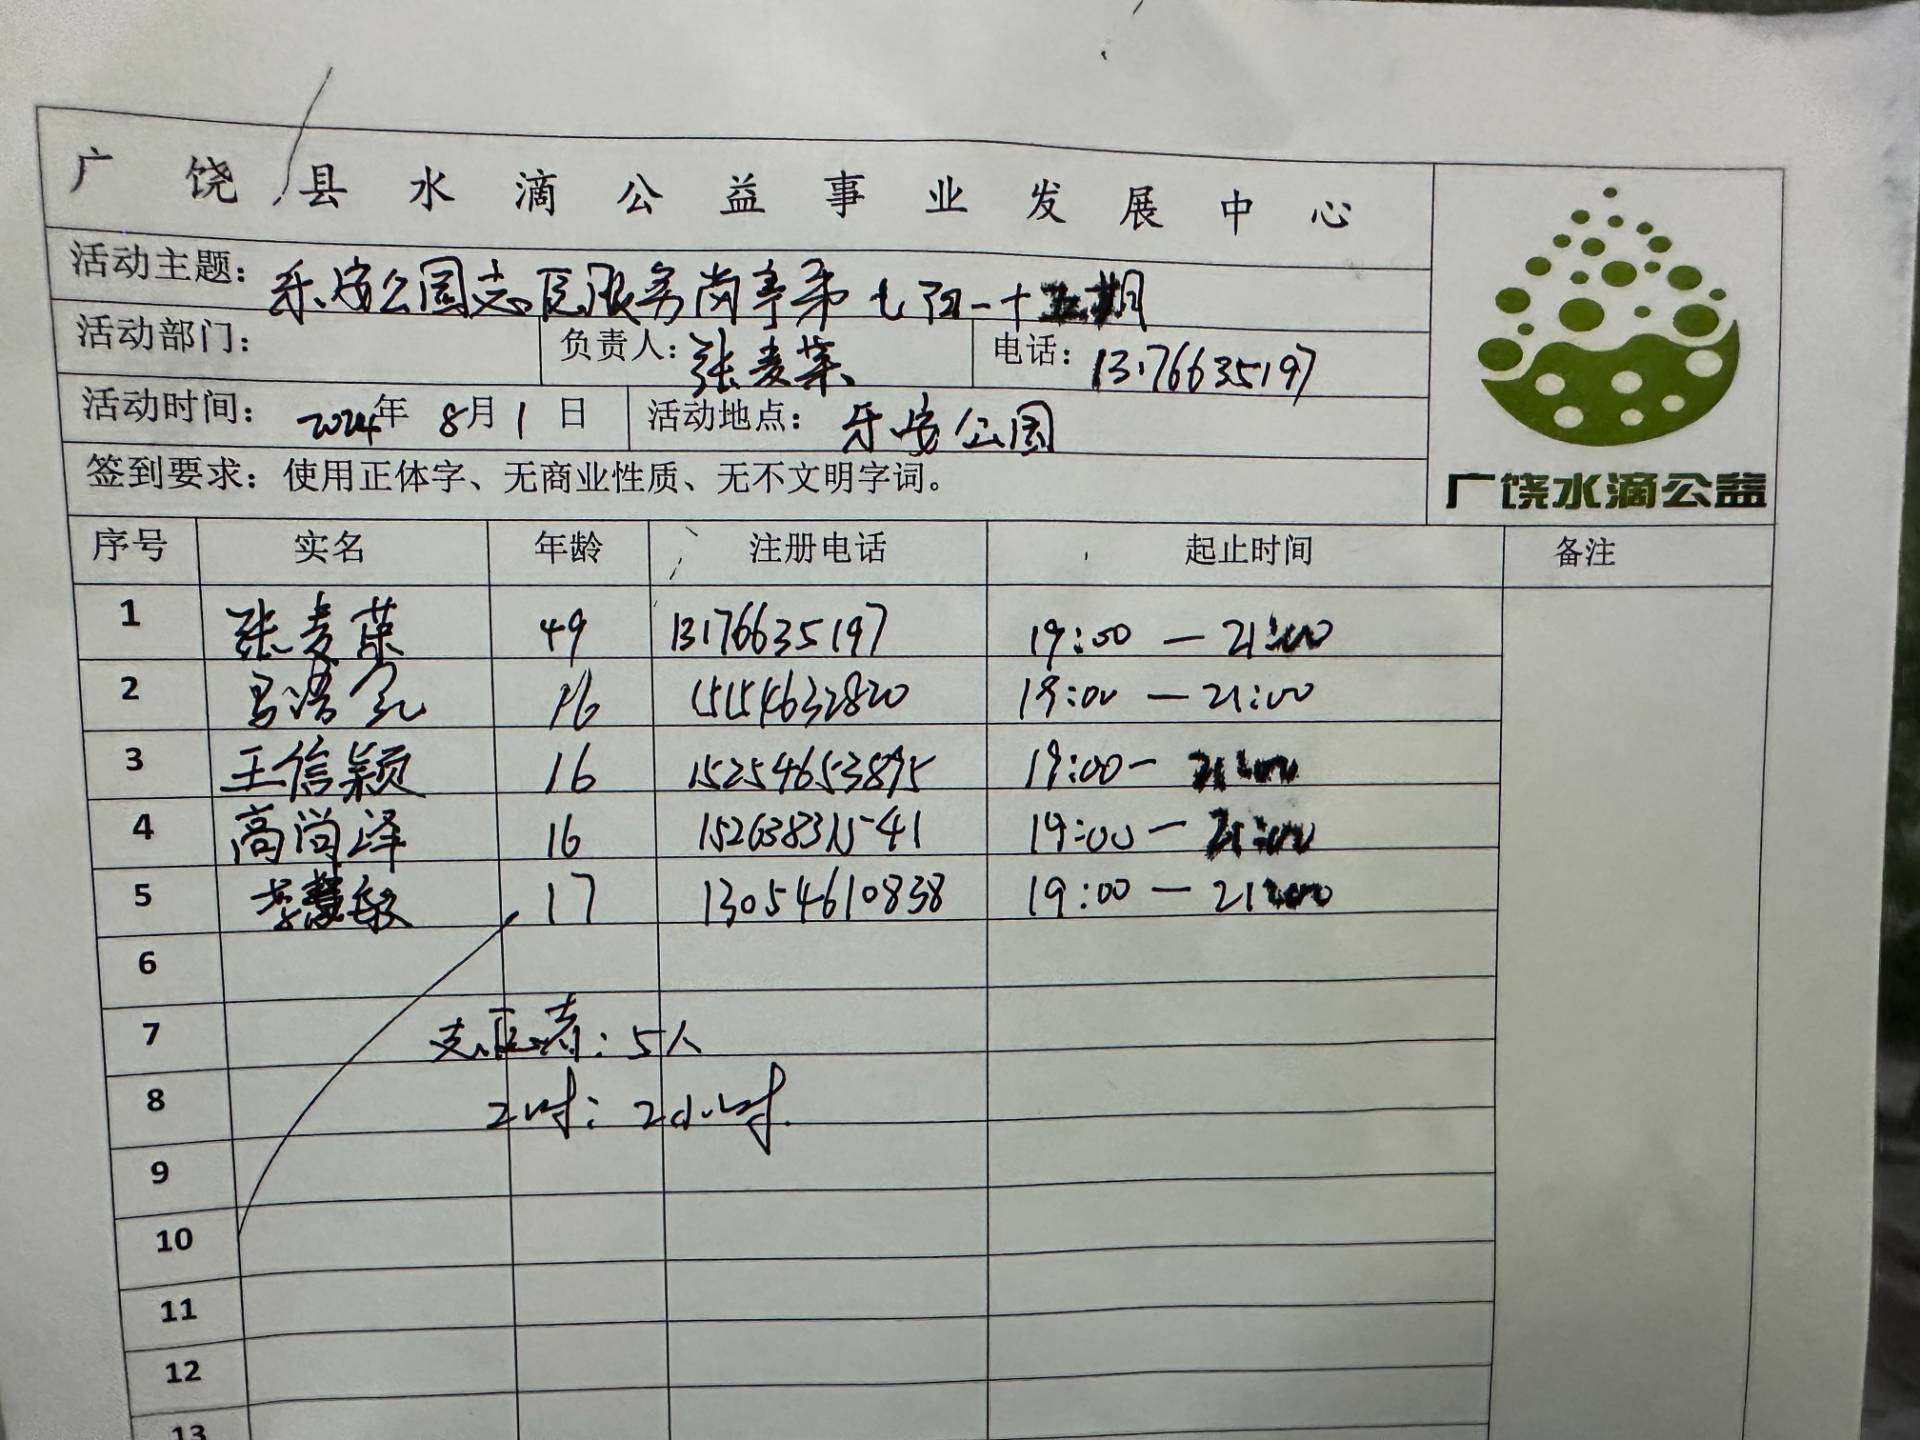 广饶县水滴公益事业发展中心
活动主题：乐安公园志愿服务岗亭第七百一十五期
活动部门：
负责人：张麦荣
电话：13176635197
活动时间：2024年8月1日
活动地点：乐安公园
签到要求：使用正体字、无商业性质、无不文明字词。
广饶水滴公益
序号 实名 年龄 注册电话 起止时间 备注
1 张麦荣 49 13176635197 19:00—21:00
2 马浩 16 15154632820 19:00—21:00
3 王信颖 16 15254653895 19:00—21:00
4 高尚泽 16 15263831541 19:00—21:00
5 李慧敏 17 13054610838 19:00—21:00
6
7 志愿者：5人
8 工时：2小时.
9
10
11
12
13